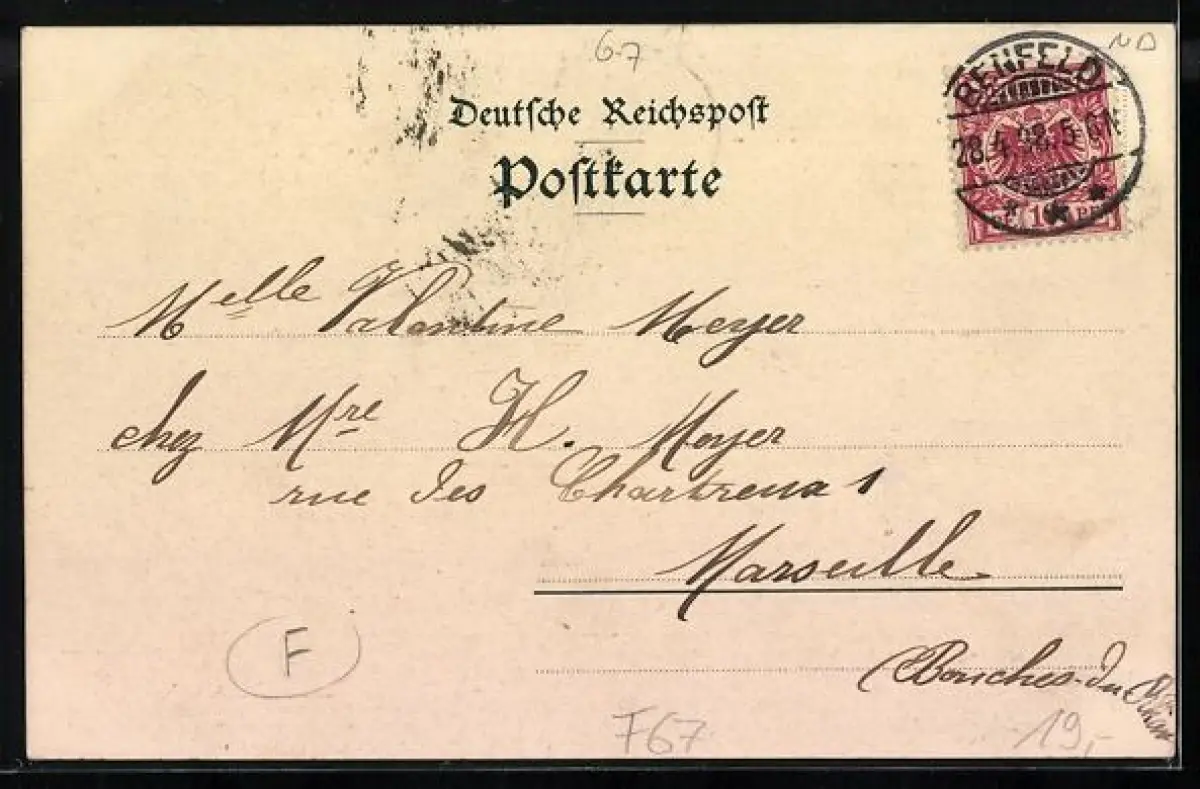 67
ND
Deutsche Reichspost
Postkarte
BENFELD
28.4.98.5-6N
10
Melle Valentine Meyer
chez Mre H. Meyer
rue des Chartreux 1
Marseille
(Bouches-du
F
F67
19,-